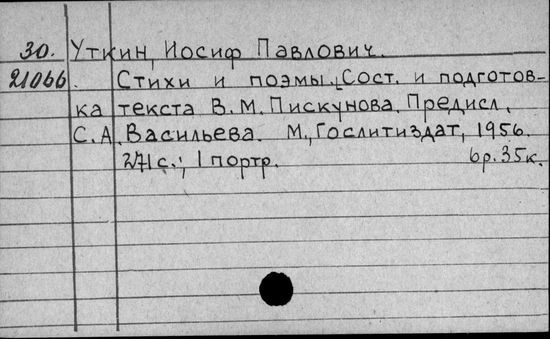 30. Уткин, Иосиф Павлович.
21066. Стихи и поэмы. [Сост. и подготов-
ка текста В. М. Пискунова. Предисл.
С. А. Васильева. М., Гослитиздат, 1956.
271 с.; 1 портр. 6р. 35к.